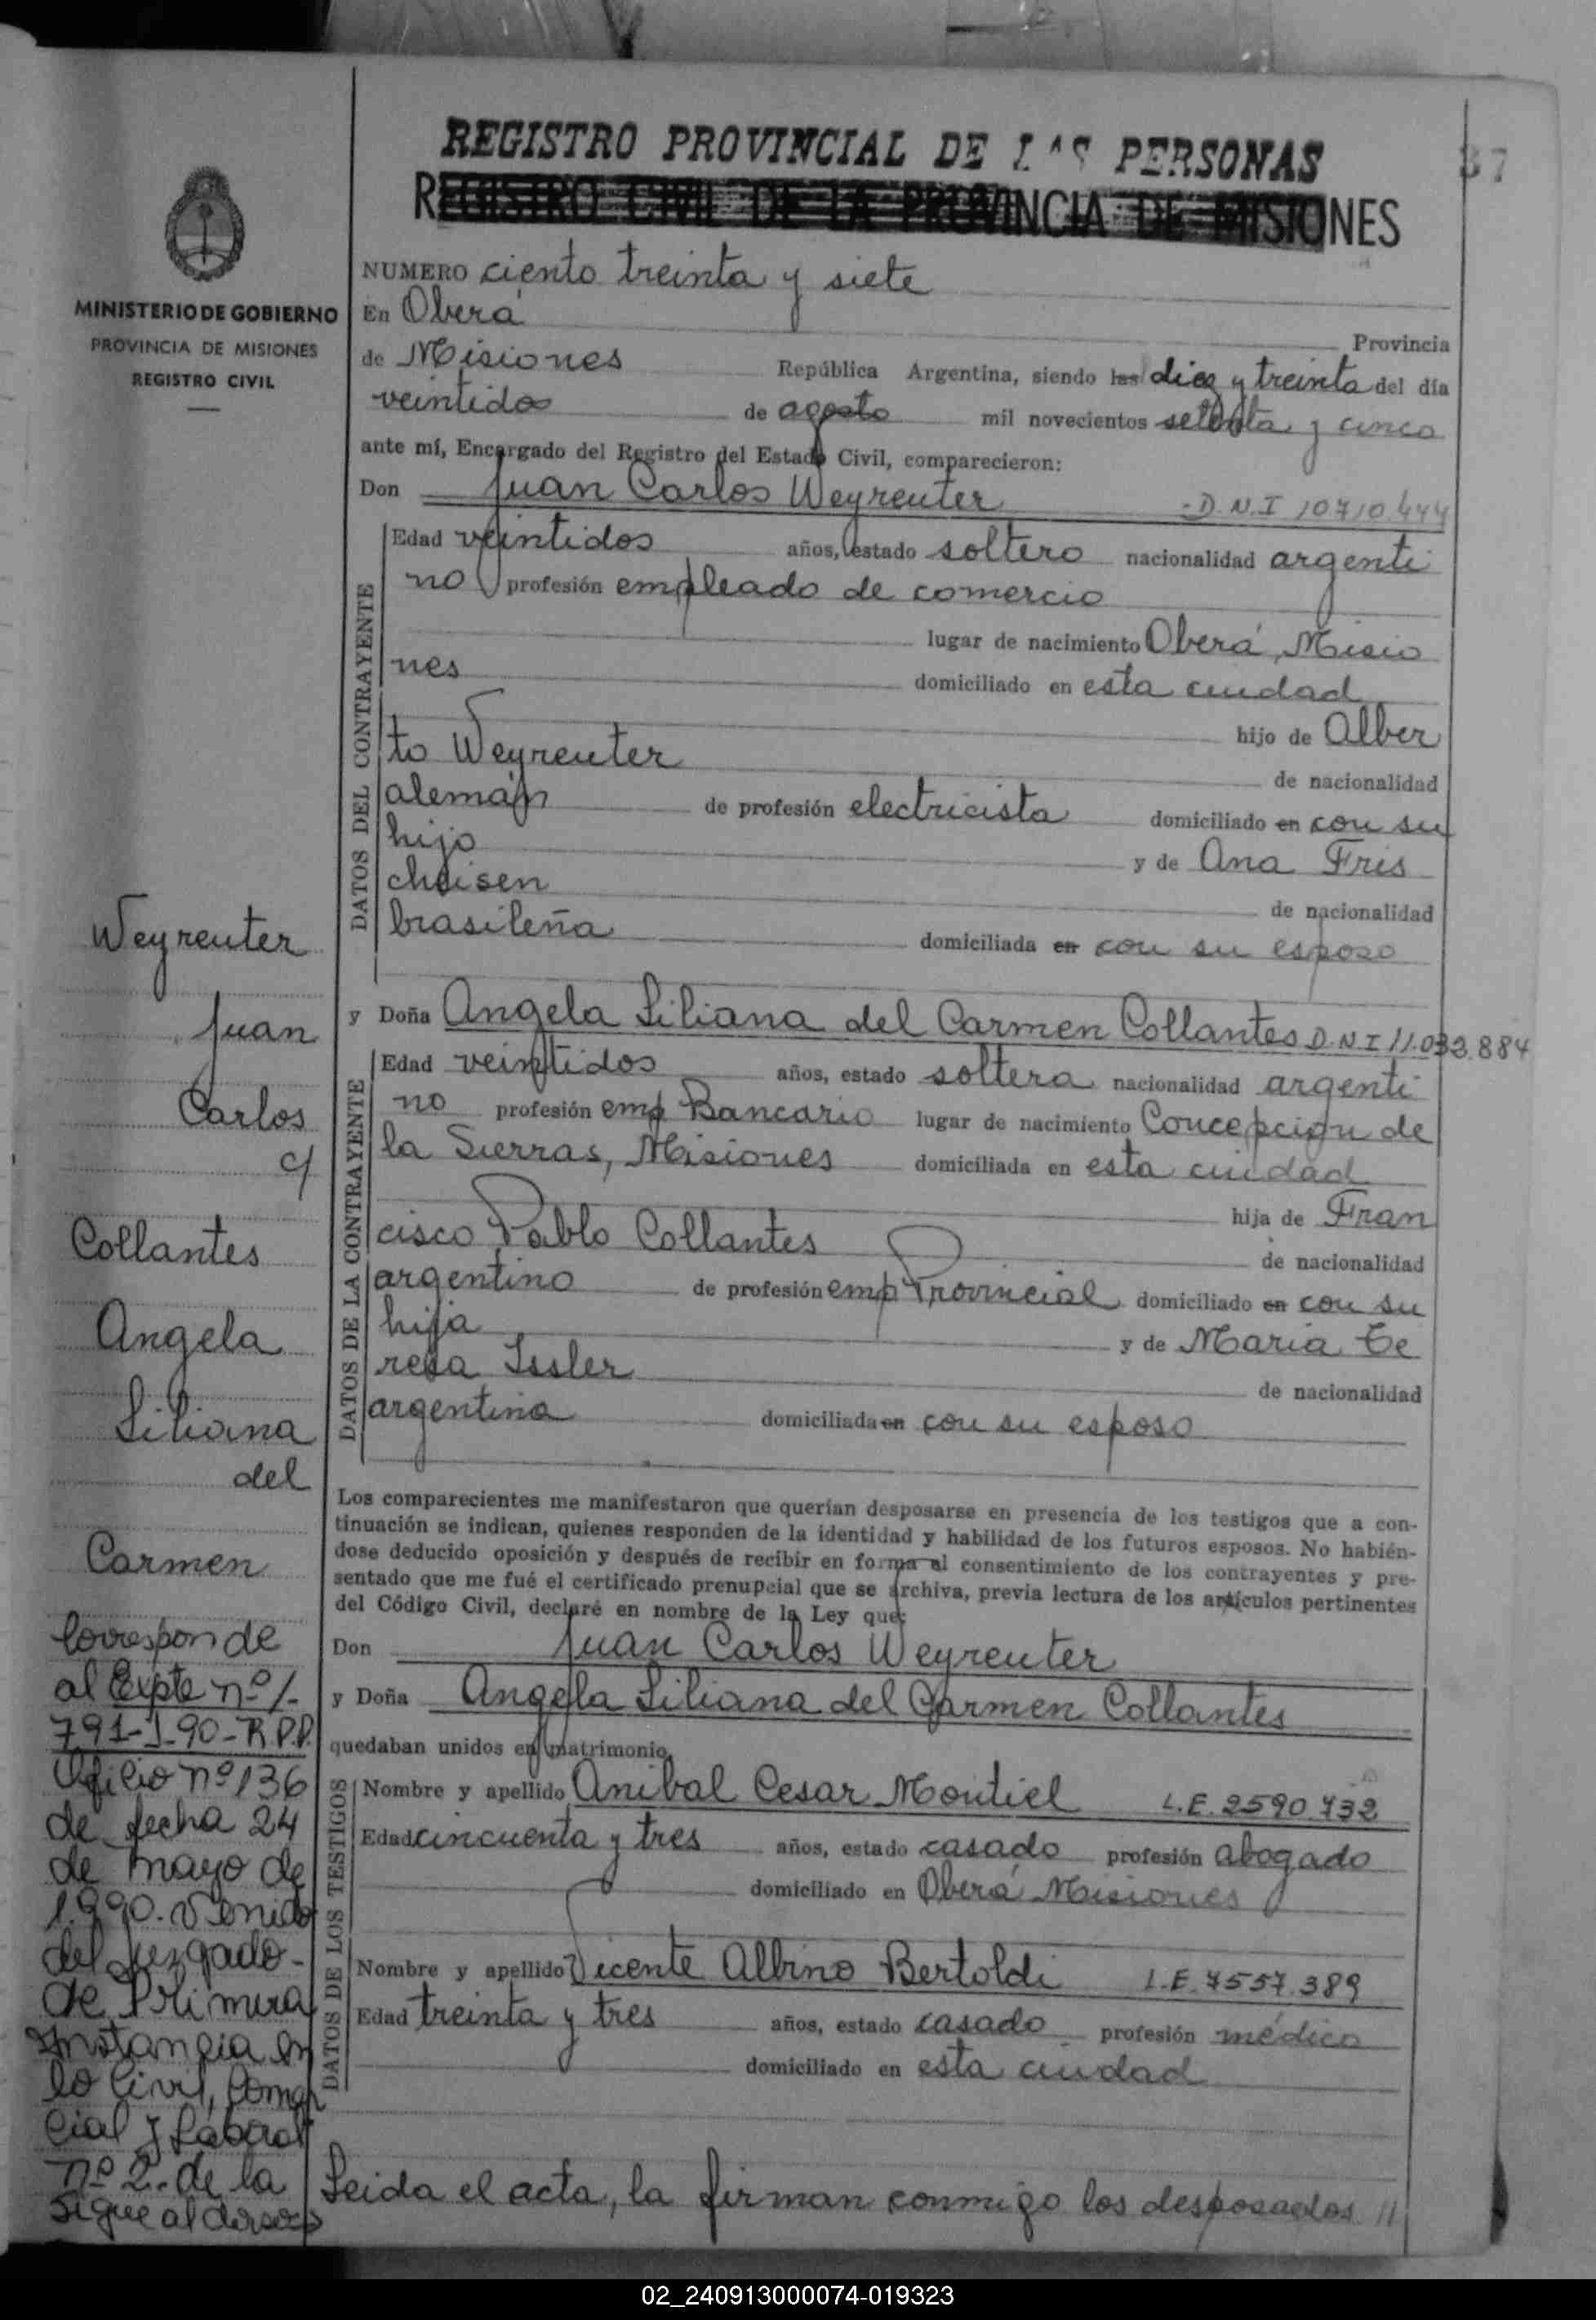 REGISTRO PROVINCIAL DE LAS PERSONAS
37
REGISTRO CIVIL DE LA PROVINCIA DE MISIONES
MINISTERIO DE GOBIERNO
PROVINCIA DE MISIONES
REGISTRO CIVIL
NUMERO ciento treinta y siete
En Oberá Provincia
de Misiones República Argentina, siendo las diez y treinta del día
veintidos de agosto mil novecientos setenta y cinco
ante mí, Encargado del Registro del Estado Civil, comparecieron:
Don Juan Carlos Weyreuter - D.N.I 10710.444
DATOS DEL CONTRAYENTE
Edad veintidos años, estado soltero nacionalidad argenti
no profesión empleado de comercio
lugar de nacimiento Oberá, Misio
nes domiciliado en esta ciudad
hijo de Alber
to Weyreuter de nacionalidad
alemán de profesión electricista domiciliado en con su
hijo y de Ana Fris
cheisen de nacionalidad
brasileña domiciliada en con su esposo
y Doña Angela Liliana del Carmen Collantes D.N.I 11.032.884
DATOS DE LA CONTRAYENTE
Edad veintidos años, estado soltera nacionalidad argenti
no profesión emp Bancario lugar de nacimiento Concepción de
la Sierras, Misiones domiciliada en esta ciudad
hija de Fran
cisco Pablo Collantes de nacionalidad
argentino de profesión emp Provincial domiciliado en con su
hija y de Maria Te
resa Issler de nacionalidad
argentina domiciliada en con su esposo
Los comparecientes me manifestaron que querían desposarse en presencia de los testigos que a con-
tinuación se indican, quienes responden de la identidad y habilidad de los futuros esposos. No habién-
dose deducido oposición y después de recibir en forma al consentimiento de los contrayentes y pre-
sentado que me fué el certificado prenupcial que se archiva, previa lectura de los artículos pertinentes
del Código Civil, declaré en nombre de la Ley que:
Don Juan Carlos Weyreuter
y Doña Angela Liliana del Carmen Collantes
quedaban unidos en matrimonio.
DATOS DE LOS TESTIGOS
Nombre y apellido Anibal Cesar Montiel L.E. 2590.732
Edad cincuenta y tres años, estado casado profesión abogado
domiciliado en Oberá Misiones
Nombre y apellido Vicente Albino Bertoldi L.E. 7557.389
Edad treinta y tres años, estado casado profesión médico
domiciliado en esta ciudad
Leida el acta, la firman conmigo los desposados //
Weyreuter
Juan
Carlos
c/
Collantes
Angela
Liliana
del
Carmen
Corresponde
al Expte nº/-
791-J-90-R.P.P.
Oficio nº 136
de fecha 24
de mayo de
1.990. venido
del Juzgado-
de Primera
Instancia en
lo Civil, Comer
cial y Laboral
nº 2.- de la
Sigue al dorso
02_240913000074-019323